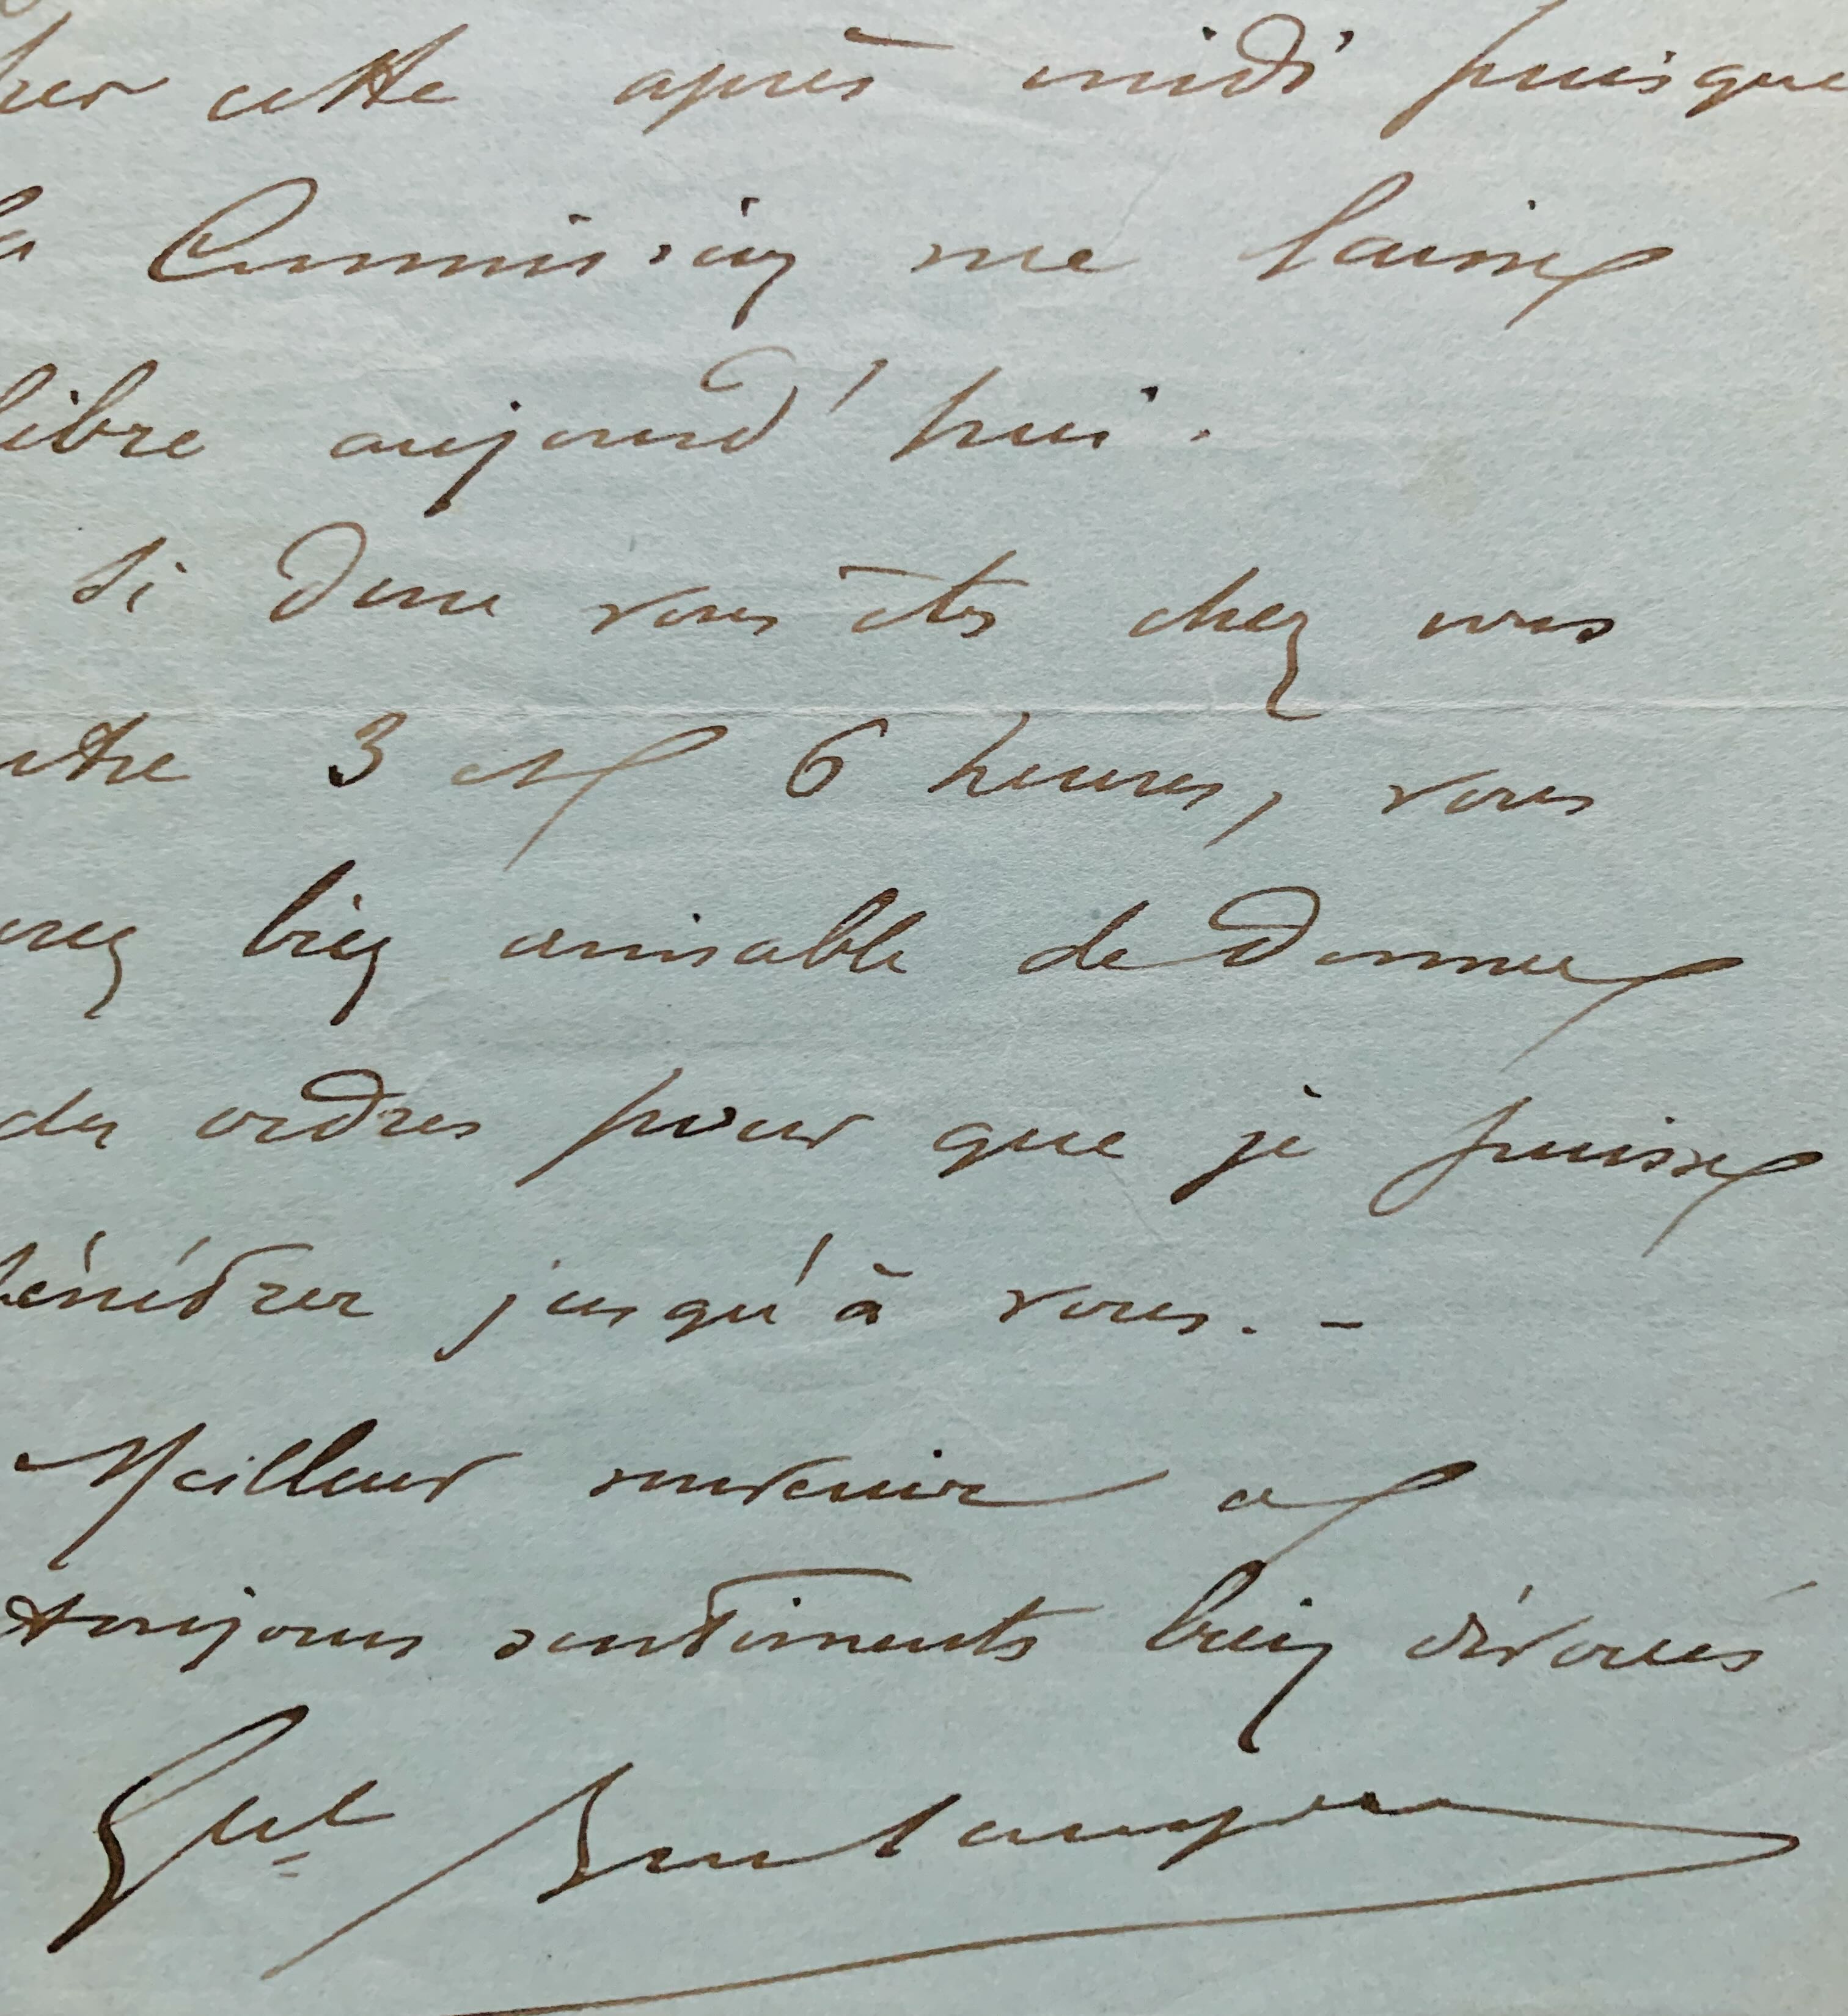 cher cette après midi puisque
la Commission me laisse
libre aujourd'hui.
Si donc vous êtes chez vous
entre 3 et 6 heures, vous
serez bien aimable de donner
des ordres pour que je puisse
pénétrer jusqu'à vous. -
Meilleur souvenir et
toujours sentiments bien dévoués
Gal Boulanger